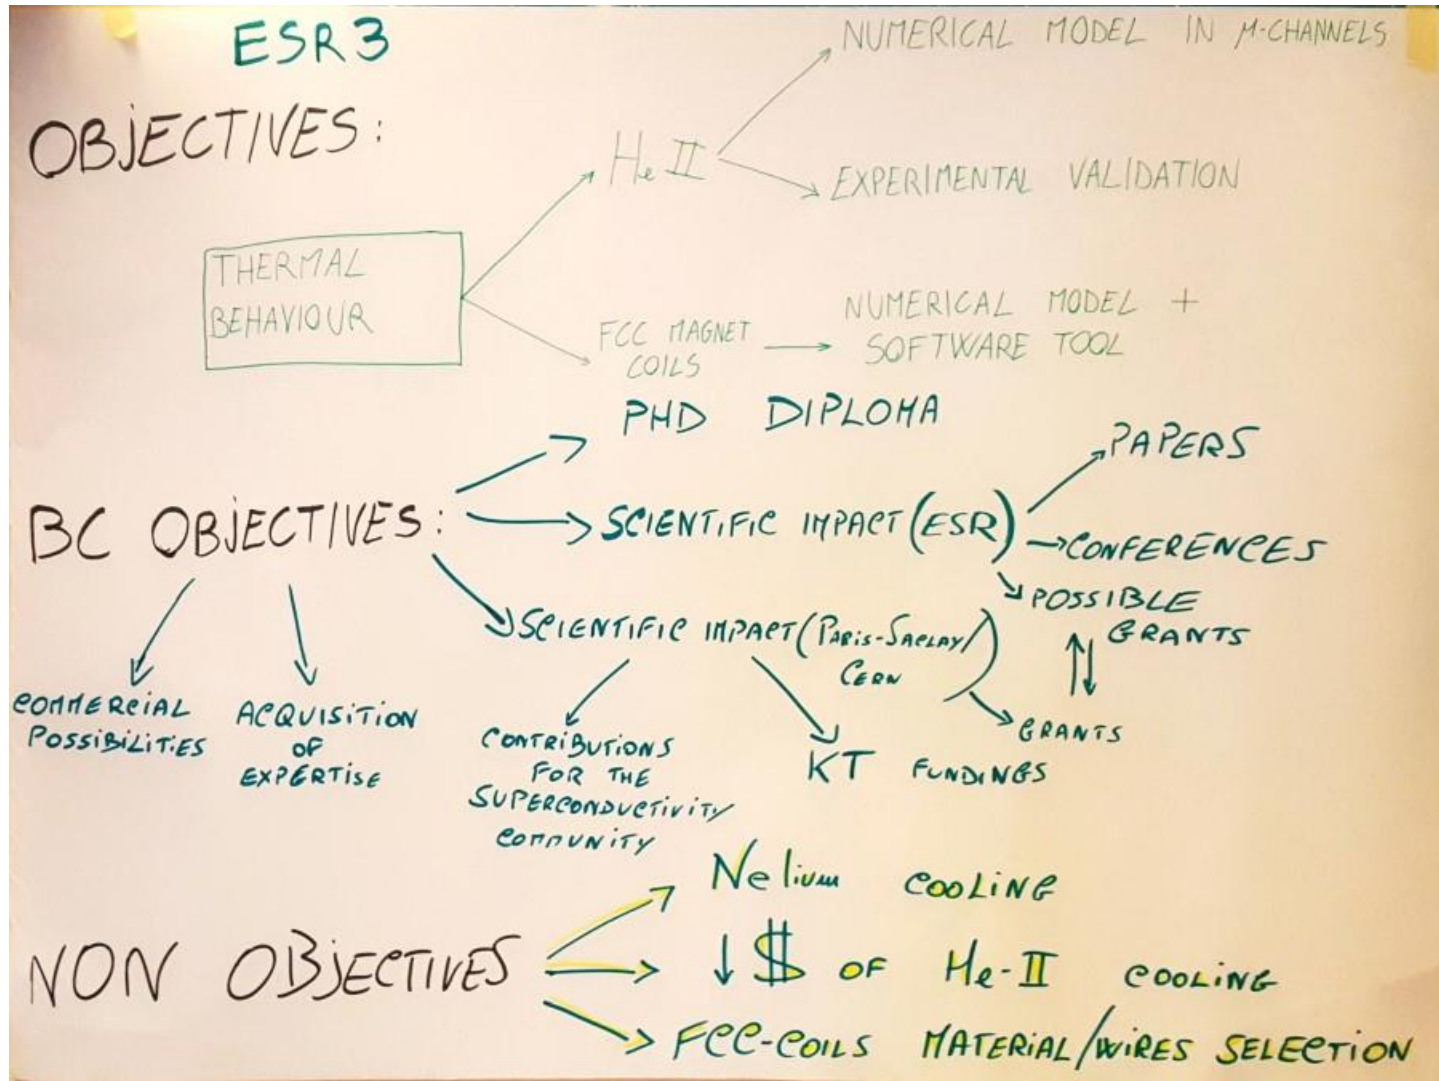 ESR3
OBJECTIVES:
NUMERICAL MODEL IN μ-CHANNELS
He II
EXPERIMENTAL VALIDATION
THERMAL
BEHAVIOUR
FCC MAGNET
COILS
NUMERICAL MODEL +
SOFTWARE TOOL
PHD DIPLOMA
BC OBJECTIVES:
SCIENTIFIC IMPACT (ESR)
PAPERS
CONFERENCES
POSSIBLE
GRANTS
SCIENTIFIC IMPACT (PARIS-SACLAY/
CERN)
GRANTS
COMMERCIAL
POSSIBILITIES
ACQUISITION
OF
EXPERTISE
CONTRIBUTIONS
FOR THE
SUPERCONDUCTIVITY
COMMUNITY
KT FUNDINGS
NON OBJECTIVES
Nelium COOLING
↓ $ OF He-II COOLING
FCC-COILS MATERIAL/WIRES SELECTION